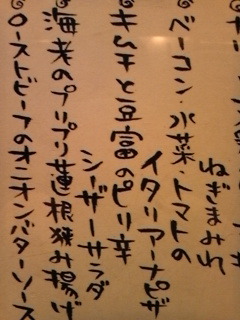 ねぎまみれ
◎ベーコン・水菜・トマトの
イタリアーナピザ
◎キムチと豆富のピリ辛
シーザーサラダ
◎海老のプリプリ蓮根狭み揚げ
◎ローストビーフのオニオンバターソース